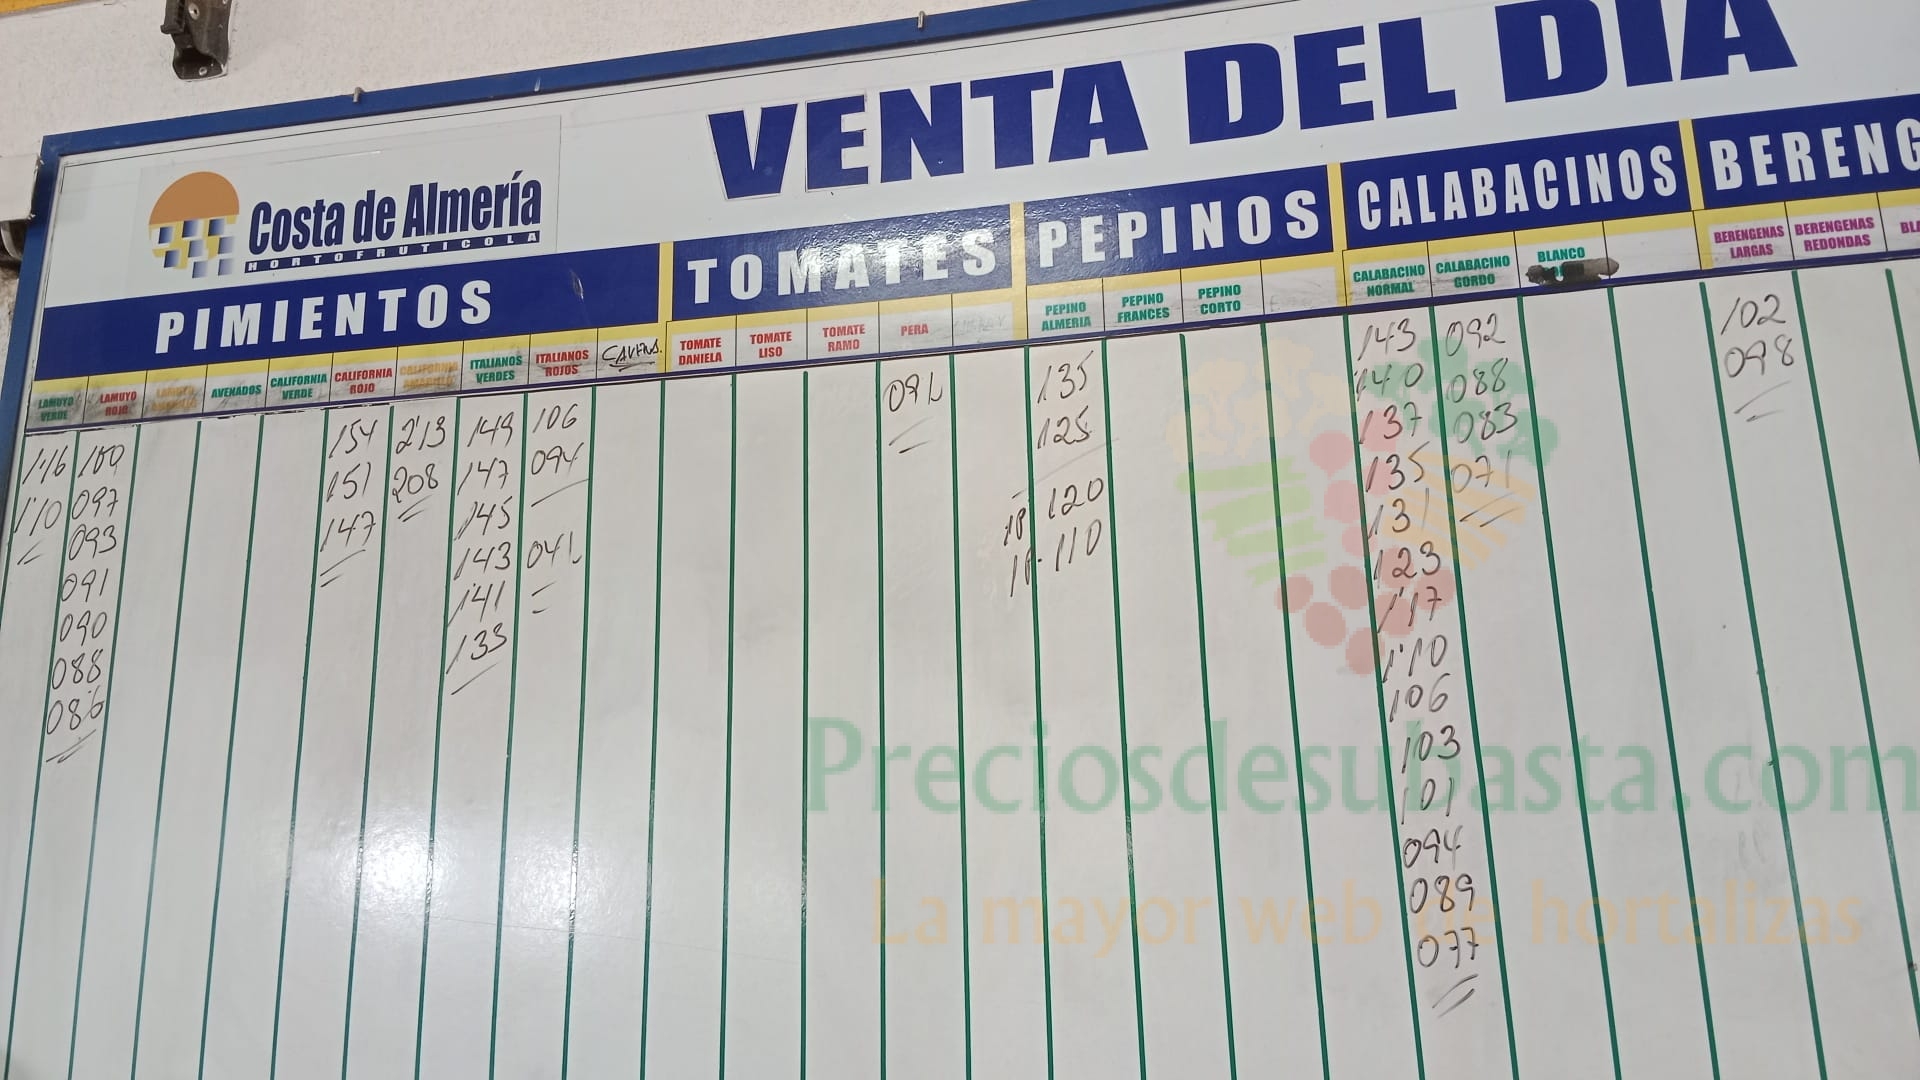 VENTA DEL DIA
Costa de Almería
HORTOFRUTICOLA
PIMIENTOS
TOMATES
PEPINOS
CALABACINOS
BERENG
LAMUYO VERDE
LAMUYO ROJO
LAMUYO AMARILLO
AVENADOS
CALIFORNIA VERDE
CALIFORNIA ROJO
CALIFORNIA AMARILLO
ITALIANOS VERDES
ITALIANOS ROJOS
TOMATE DANIELA
TOMATE LISO
TOMATE RAMO
PERA
PEPINO ALMERIA
PEPINO FRANCES
PEPINO CORTO
CALABACINO NORMAL
CALABACINO GORDO
BLANCO
BERENGENAS LARGAS
BERENGENAS REDONDAS
BLA
1'16
1'10
100
097
093
091
090
088
086
154
151
147
2'13
208
149
147
145
143
141
133
106
094
041
091
135
125
18 120
110
143
140
137
135
131
123
1'17
1'10
106
103
101
094
089
077
092
088
083
071
102
098
Preciosdesubasta.com
La mayor web de hortalizas